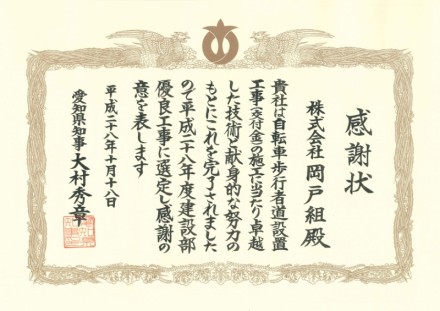 感謝状
株式会社 岡戸組 殿
貴社は自転車歩行者道設置
工事(交付金)の施工に当たり卓越
した技術と献身的な努力の
もとにこれを完了されました
ので平成二十八年度建設部
優良工事に選定し感謝の
意を表します
平成二十八年十月十八日
愛知県知事 大村秀章